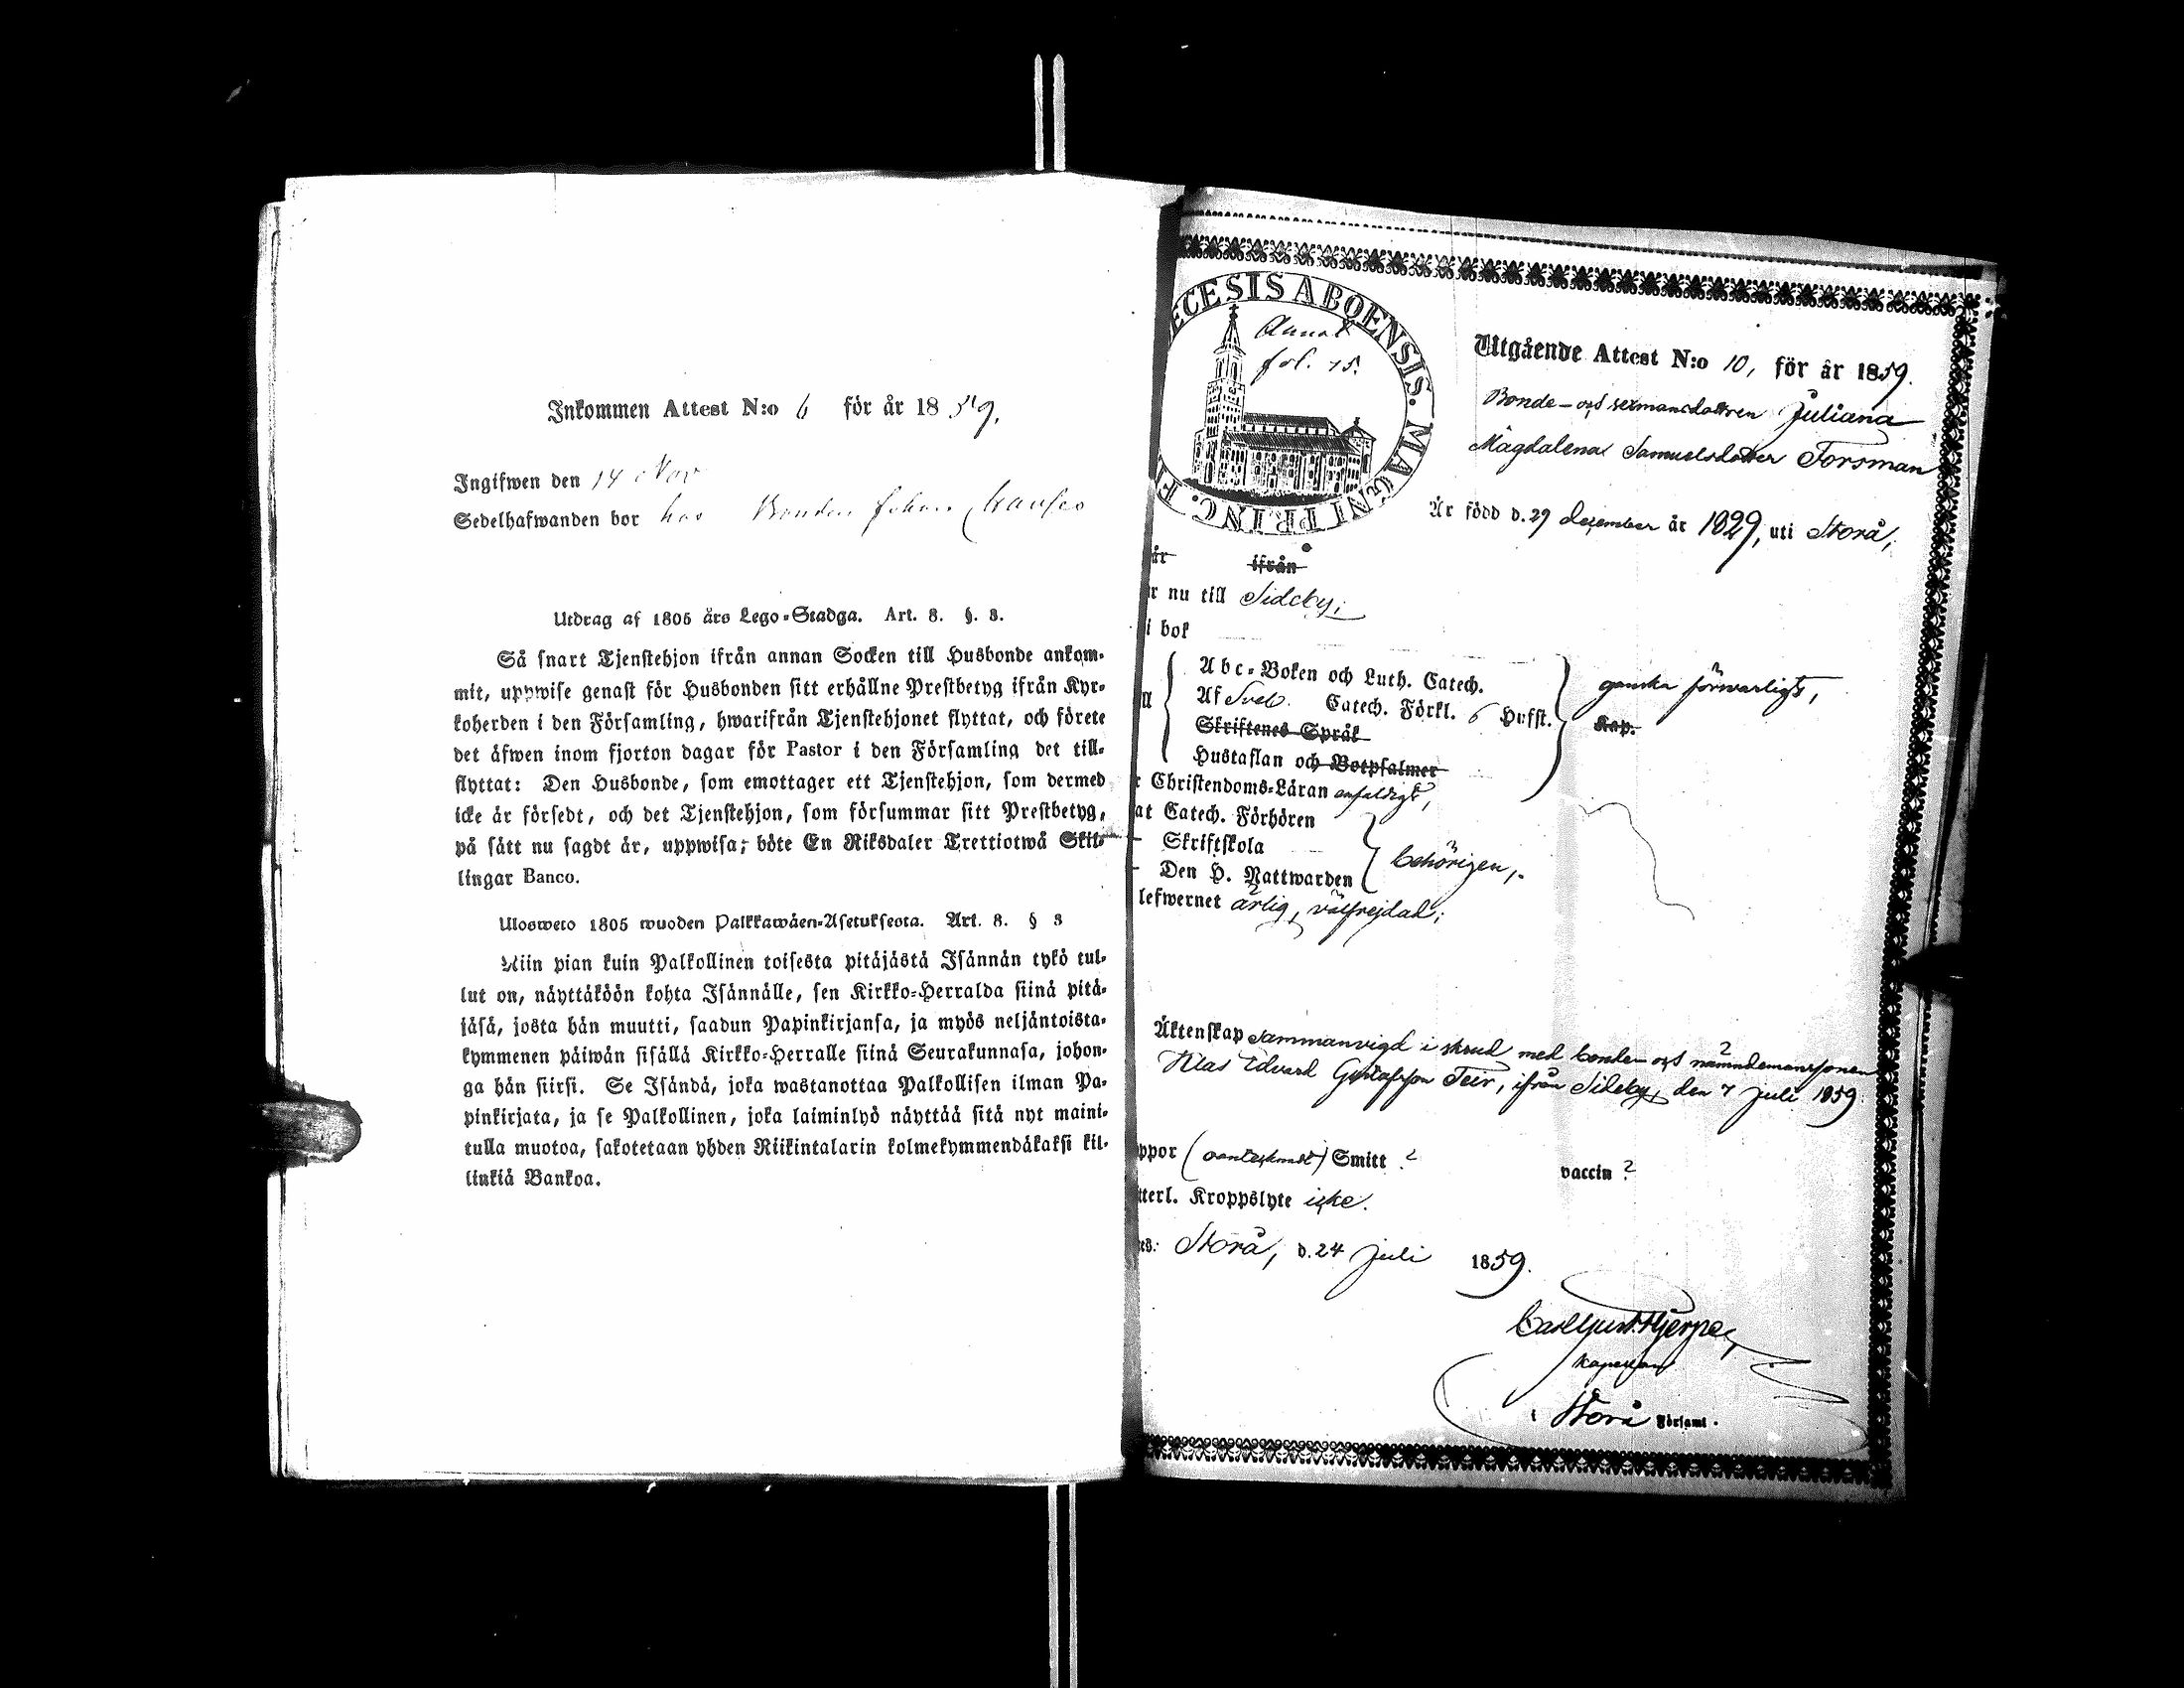 Inkommen Attest N:o 6 för år 1859.
Ingifwen den 14 Nov
Sedelhafwanden bor hos Bonden Johan
Utdrag af 1805 års Lego-Stadga. Art. 8. §. 3.
Så snart Tjenstehjon ifrån annan Socken till Husbonde ankom-
mit, uppwise genast för Husbonden sitt erhållne Prestbetyg ifrån Kyr-
koherden i den Församling, hwarifrån Tjenstehjonet flyttat, och förete
det äfwen inom fjorton dagar för Pastor i den Församling det till-
flyttat: Den Husbonde, som emottager ett Tjenstehjon, som dermed
icke är försedt, och det Tjenstehjon, som försummar sitt Prestbetyg,
på sätt nu sagdt är, uppwisa; böte En Riksdaler Trettiotwå Skil-
lingar Banco.
Ulosweto 1805 wuoden Palkkawäen-Asetuksesta. Art. 8. § 3
Niin pian kuin Palkollinen toisesta pitäjästä Isännän tykö tul-
lut on, näyttäköön kohta Isännälle, sen Kirkko-Herralda siinä pitä-
jäsä, josta hän muutti, saadun Papinkirjansa, ja myös neljäntoista-
kymmenen päiwän sisällä Kirkko-Herralle siinä Seurakunnasa, johon-
ga hän siirsi. Se Isändä, joka wastanottaa Palkollisen ilman Pa-
pinkirjata, ja se Palkollinen, joka laiminlyö näyttää sitä nyt maini-
tulla muotoa, sakotetaan yhden Riikintalarin kolmekymmendäkaksi kil-
linkiä Bankoa.
ECESIS ABOENSIS. MAGNI PRINC. F
fol. 15.
Utgående Attest N:o 10, för år 1859.
Bonde- och sexmansdottren Juliana
Magdalena Samuelsdotter Forsman
Är född d. 29 december år 1829, uti Storå,
år ifrån
r nu till Sideby;
i bok
Abc-Boken och Luth. Catech.
Af Sveb. Catech. Förkl. 6 Hufst.
Skriftenes Språk
Hustaflan och Botpsalmer
ganska försvarligt,
Kap.
r Christendoms-Läran enfaldigt,
at Catech. Förhören
Skriftskola
Den H. Nattwarden
behörigen,
lefwernet ärlig, välfrejdad;
Äktenskap sammanvigd i skrud med bonde- och nämndemanssonen
Klas Edvard Gustafsson Teir, ifrån Sideby, den 7 Juli 1859
ppor Smitt ? vaccin ?
tterl. Kroppslyte icke.
es: Storå, d. 24 Juli 1859.
Carl Gust. Hjerpe,
Kapellan
i Storå Församl.